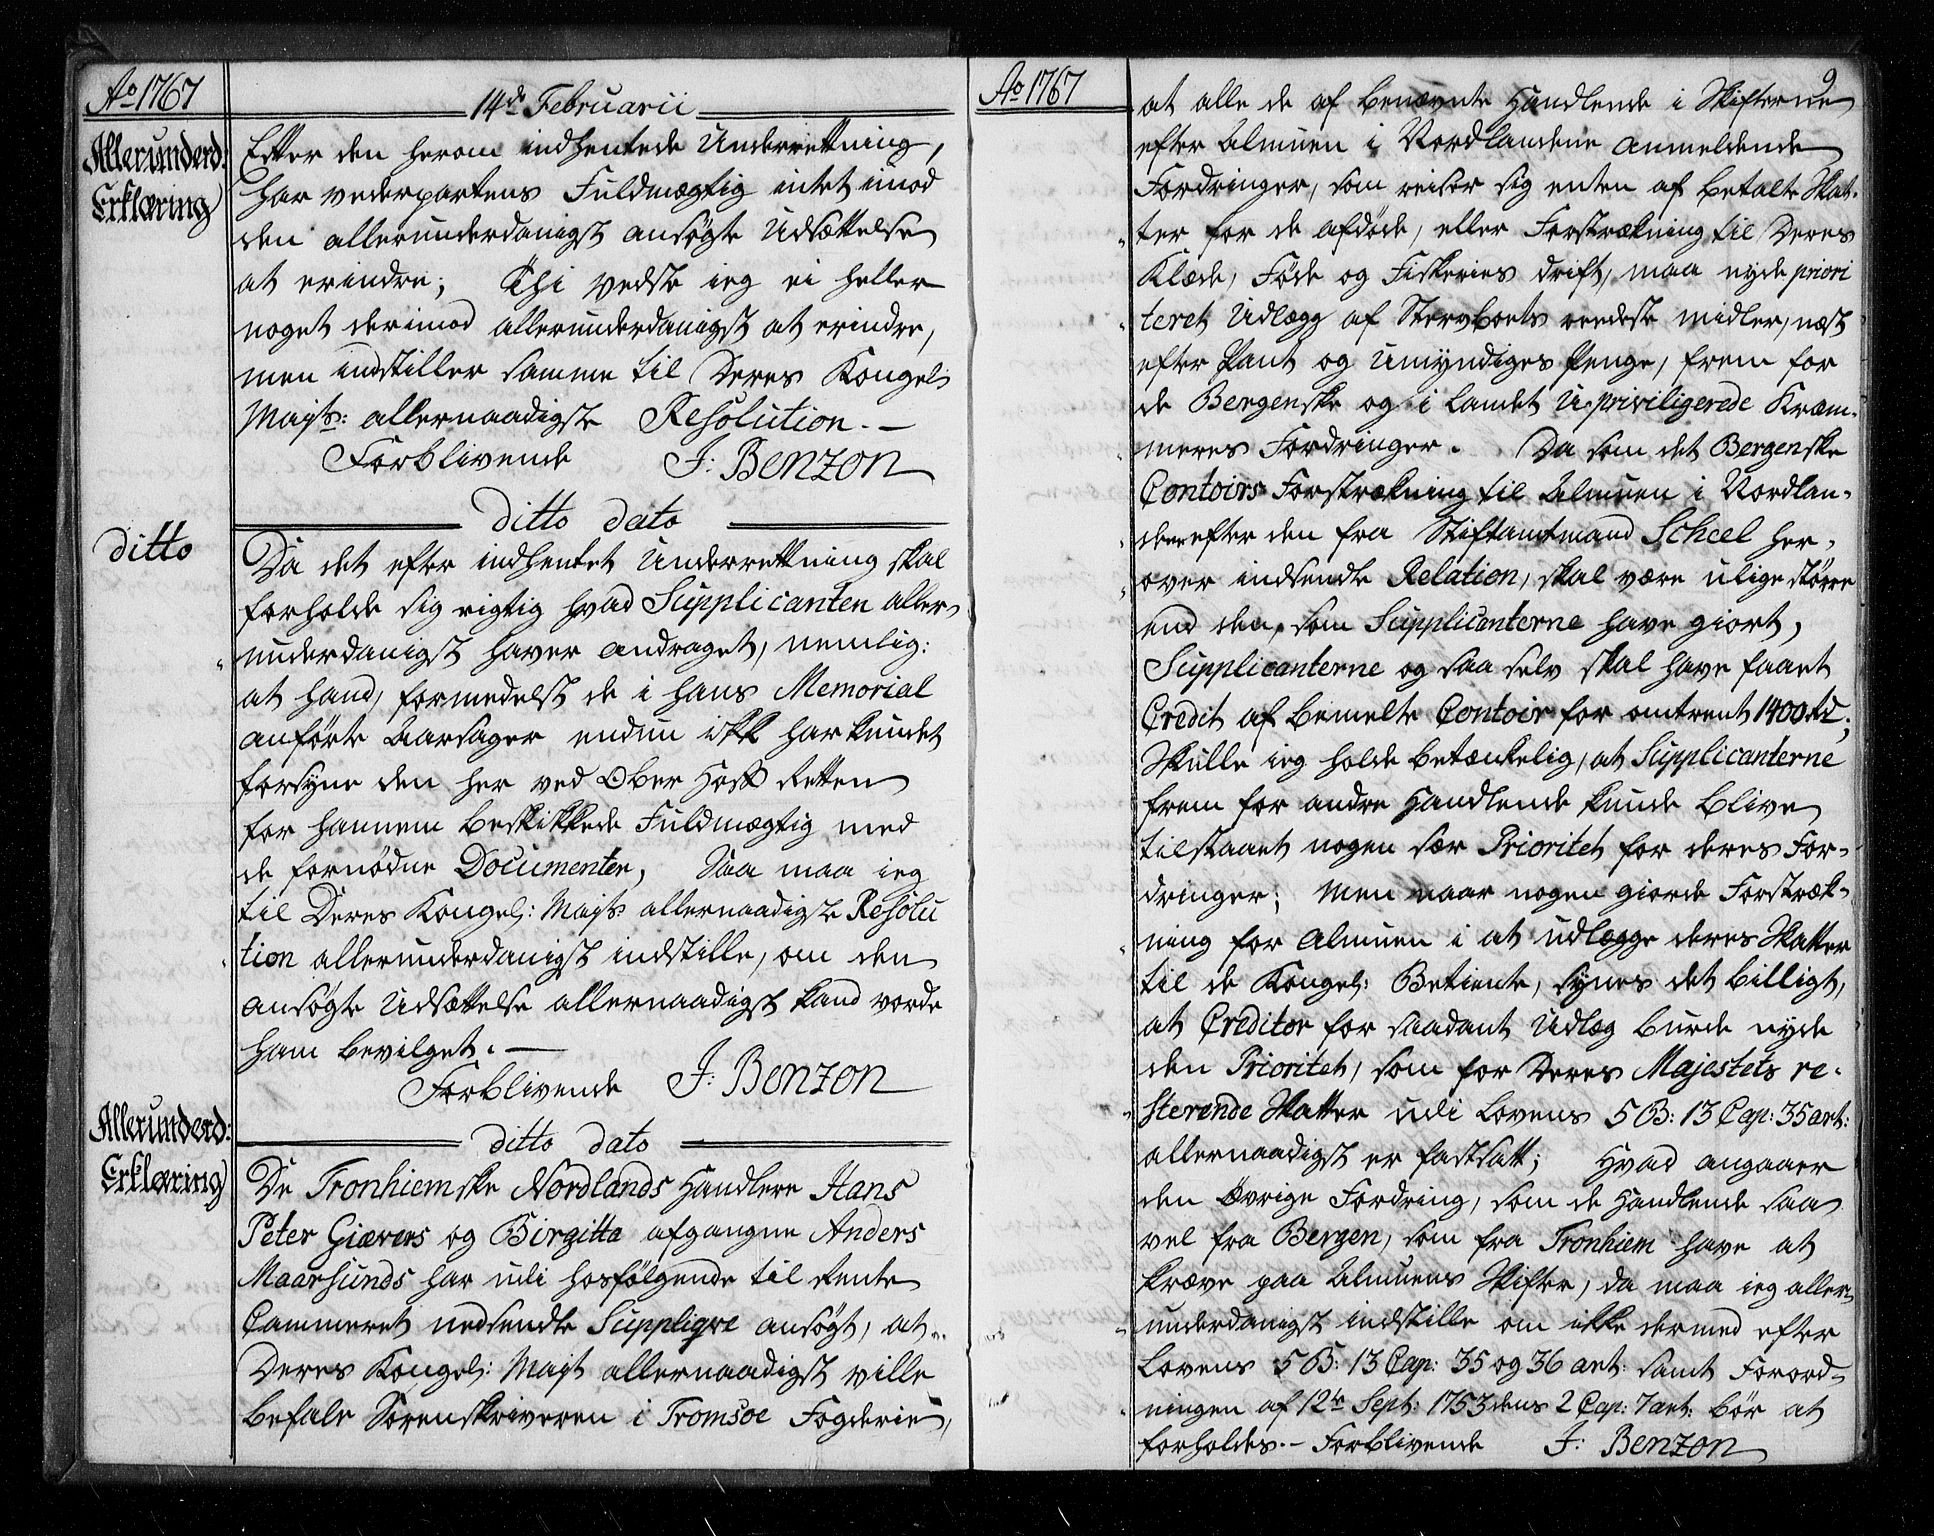 Ao 1767
14de Februarii
Allerunderd:
Erklæring
Efter den herom indhentede Underrettning,
har vederpartens Fuldmægtig intet imod
den allerunderdanigst ansøgte Udsættelse
at erindre; Thi vedste ieg ei heller
noget derimod allerunderdanigst at erindre,
men indstiller samme til Deres Kongel:
Majts: allernaadigste Resolution. —
Forblivende J: Benzon
ditto dato
ditto
Da det efter indhentet Underrettning skal
forholde sig rigtig hvad Supplicanten aller-
underdanigst haver andraget, nemlig:
at hand, formedelst de i hans Memorial
anførte Aarsager endnu ikk har kundet
forsyne den her ved Ober Hoff Retten
for hannem beskikkede Fuldmægtig med
de fornødne Documenter, Saa maa ieg
til Deres Kongel: Majts allernaadigste Resolu
tion allerunderdanigst indstille, om den
ansøgte Udsættelse allernaadigst kand vorde
ham bevilget. —
Forblivende J: Benzon
ditto dato
Allerunderd:
Erklæring
De Tronhiemske Nordlands Handlere Hans
Peter Giævers og Birgitta afgangne Anders
Maarsunds har udi hosfølgende til Rente
Cammeret nedsendte Supplique ansøgt, at
Deres Kongel: Majt allernaadigst ville
befale Sorenskriveren i Tromsoe Fogderie,
Ao 1767
9
at alle de af benævnte Handlende i Skifterne
efter Almuen i Nordlandene anmeldende
Fordringer, som reiser sig enten af betalte Skat-
ter for de afdøde, eller Forstrækning til Deres
Klæde, Føde og Fiskeries drift, maa nyde priori
teret Udlægg af Stervboets reedeste midler, næst
efter Pant og Umyndiges Penge, frem for
de Bergenske og i Landet U-priviligerede Kræm-
meres Fordringer. Da som det Bergenske
Contoirs Forstrækning til Almuen i Nordlan-
dene efter den fra Stiftamtmand Scheel her-
over indsendte Relation, skal være ulige større
end den, som Supplicanterne have giort,
Supplicanterne og saa selv skal have faaet
Credit af bemelte Contoir for omtrent 1400 Rd;
Skulle ieg holde betænkelig, at Supplicanterne
frem for andre Handlende kunde blive
tilstaaet nogen sær Prioritet for deres For-
dringer; Men naar nogen giorde Forstræk-
ning for Almuen i at udlægge deres Skatter
til de Kongel: Betiente, synes det billigt,
at Creditor for saadant Udlæg burde nyde
den Prioritet, som for Deres Majestets re-
sterende Skatter udi Lovens 5 B: 13 Cap: 35 art:
allernaadigst er fastsatt; Hvad angaaer
den øvrige Fordring, som de Handlende saa
vel fra Bergen, som fra Tronhiem have at
kræve paa Almuens Skifter, da maa ieg aller-
underdanigst indstille om ikke dermed efter
Lovens 5 B: 13 Cap: 35 og 36 art: samt Forord-
ningen af 12te Sept: 1753 dens 2 Cap: 7 art: bør at
forholdes. — Forblivende J: Benzon